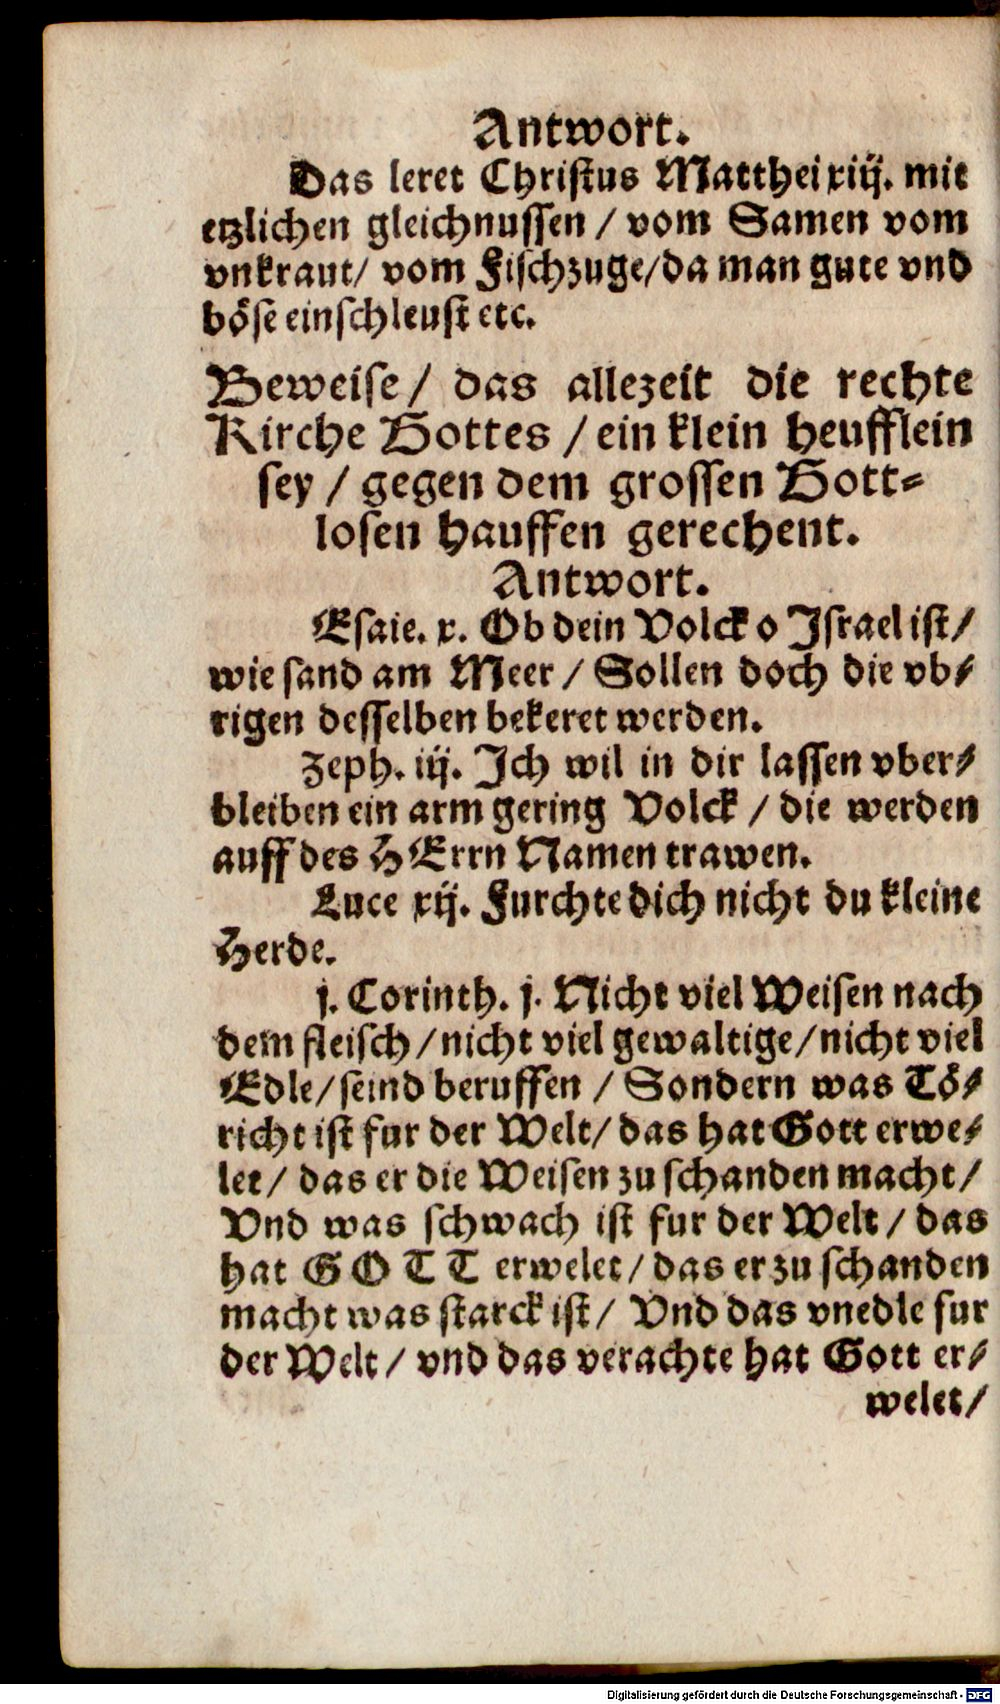 Antwort.
Das leret Christus Matthei xiij. mit
etzlichen gleichnussen / vom Samen vom
vnkraut/ vom Fischzuge/da man gute vnd
böse einschleust etc.
Beweise / das allezeit die rechte
Kirche Gottes / ein klein heufflein
sey / gegen dem grossen Gott-
losen hauffen gerechent.
Antwort.
Esaie. x. Ob dein Volck o Israel ist/
wie sand am Meer / Sollen doch die vb-
rigen desselben bekeret werden.
Zeph. iij. Ich wil in dir lassen vber-
bleiben ein arm gering Volck / die werden
auff des HErrn Namen trawen.
Luce xij. Furchte dich nicht du kleine
Herde.
j. Corinth. j. Nicht viel Weisen nach
dem fleisch/nicht viel gewaltige/nicht viel
Edle/seind beruffen / Sondern was Tö-
richt ist fur der Welt/ das hat Gott erwe-
let/ das er die Weisen zu schanden macht/
Vnd was schwach ist fur der Welt / das
hat GOTT erwelet/das er zu schanden
macht was starck ist/ Vnd das vnedle fur
der Welt/ vnd das verachte hat Gott er-
welet/
Digitalisierung gefördert durch die Deutsche Forschungsgemeinschaft - DFG